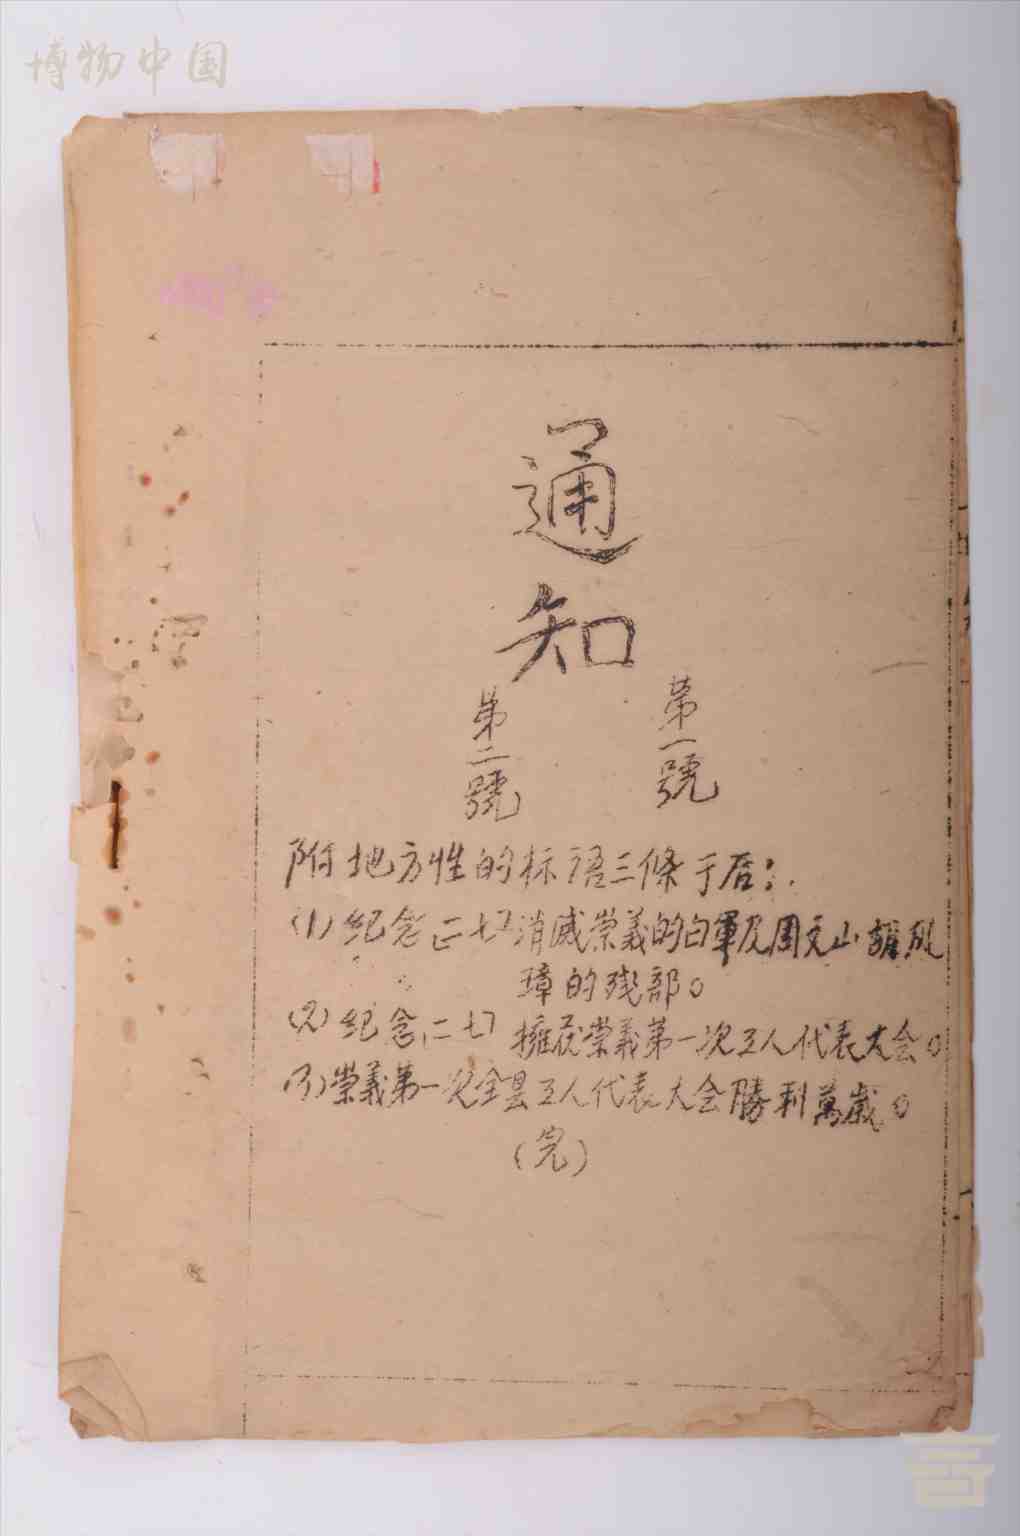 博物中国
通
知
第一號
第二號
附地方性的标语三條于后:
(1)纪念二七消滅崇義的白軍及周文山胡烈
璋的残部。
(2)纪念二七 擁護崇義第一次工人代表大会。
(3)崇義第一次全县工人代表大会勝利萬歲。
(完)